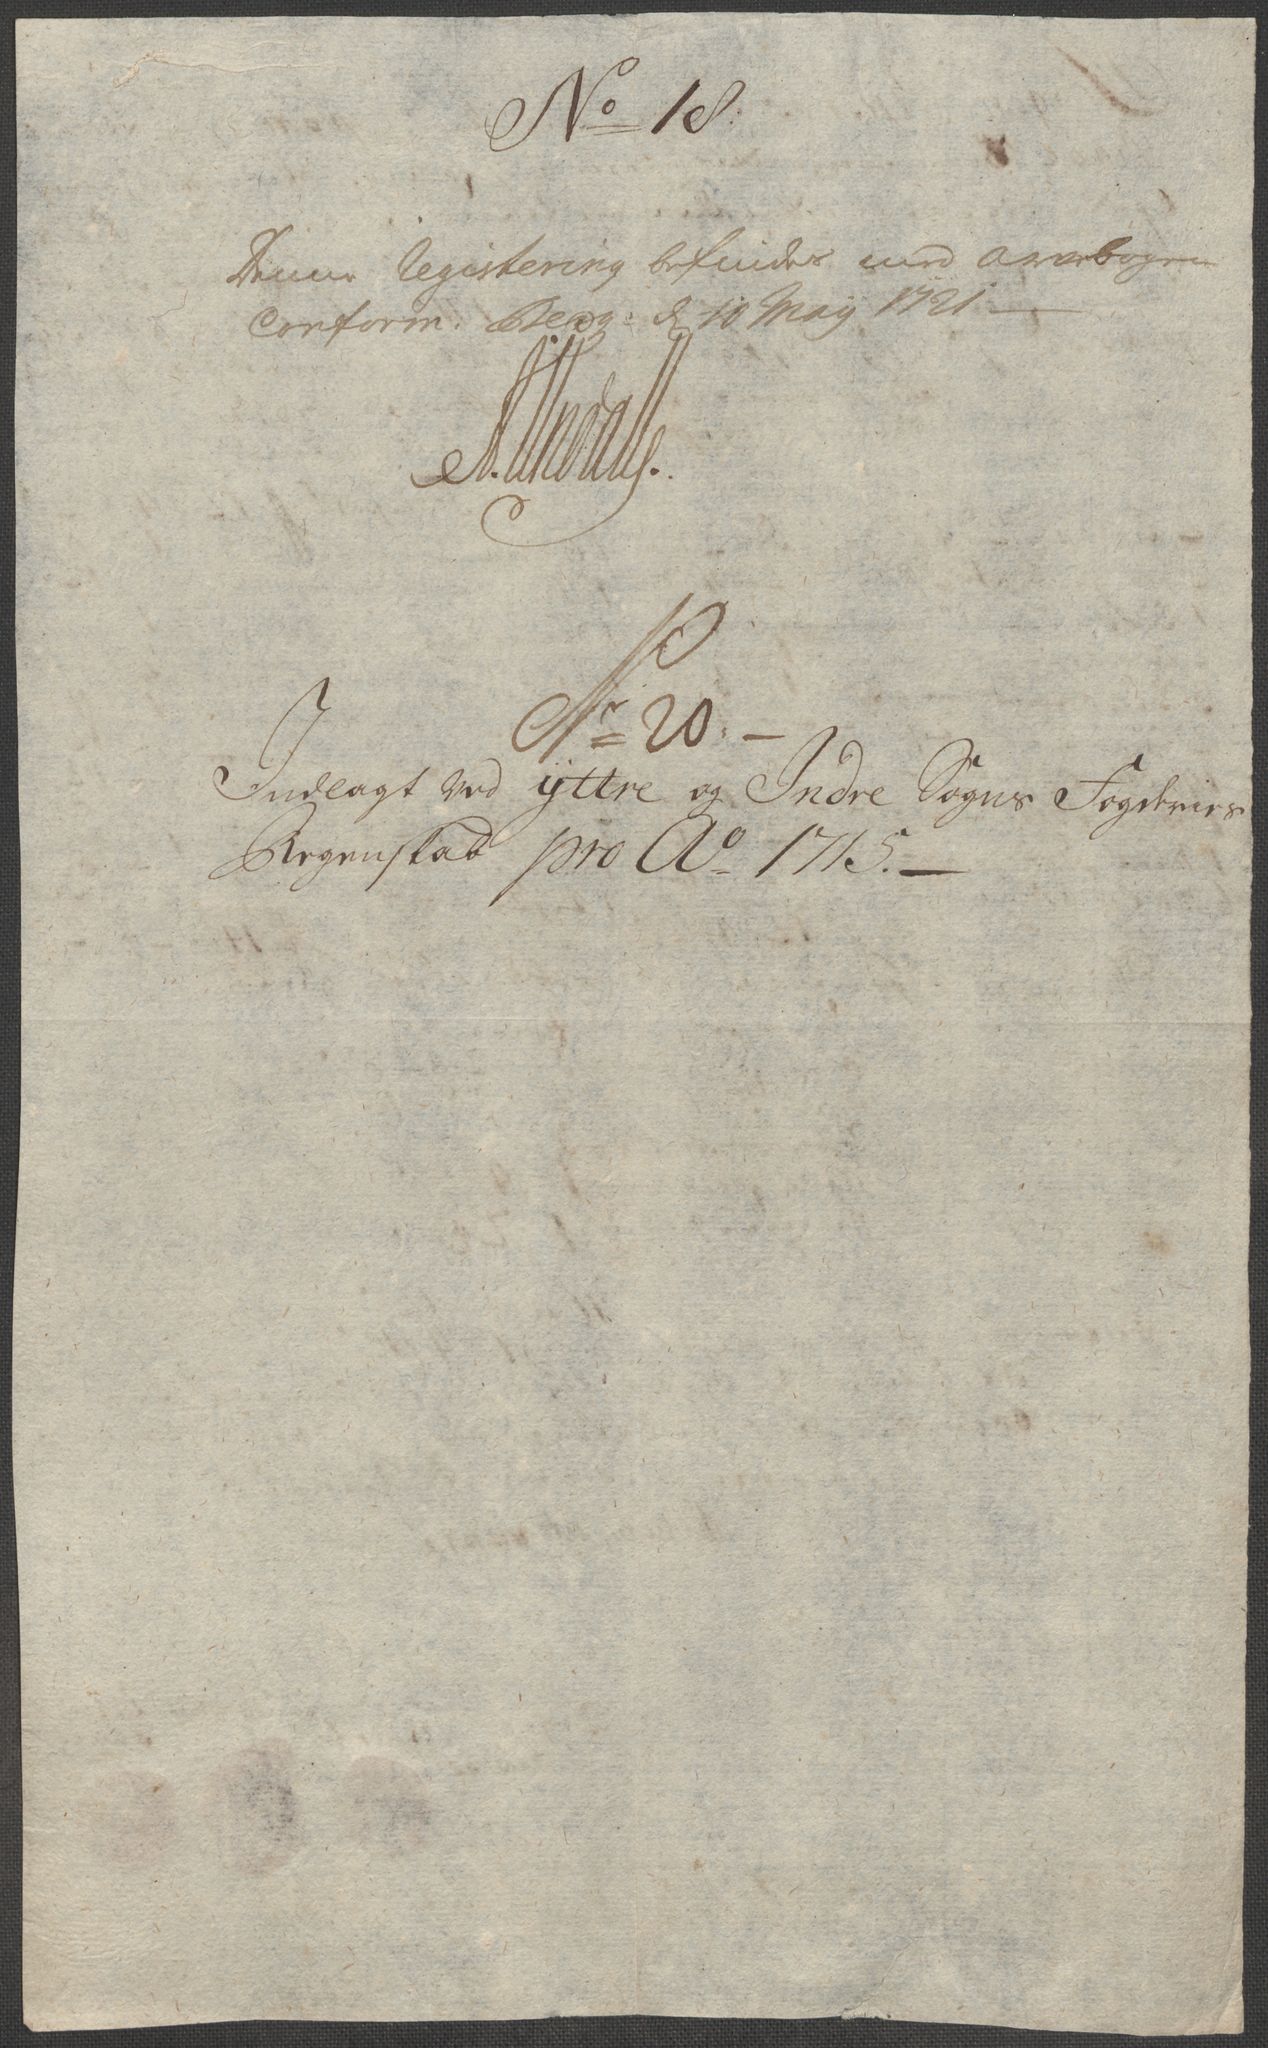 No 18.
Denne Registering befindes med
Conform. Berg: d 10 Maij 1721
Nr 20.
Indlagt ved ÿttre og Indre Sogns Fogderies
Regenskab pro Ao 1715.